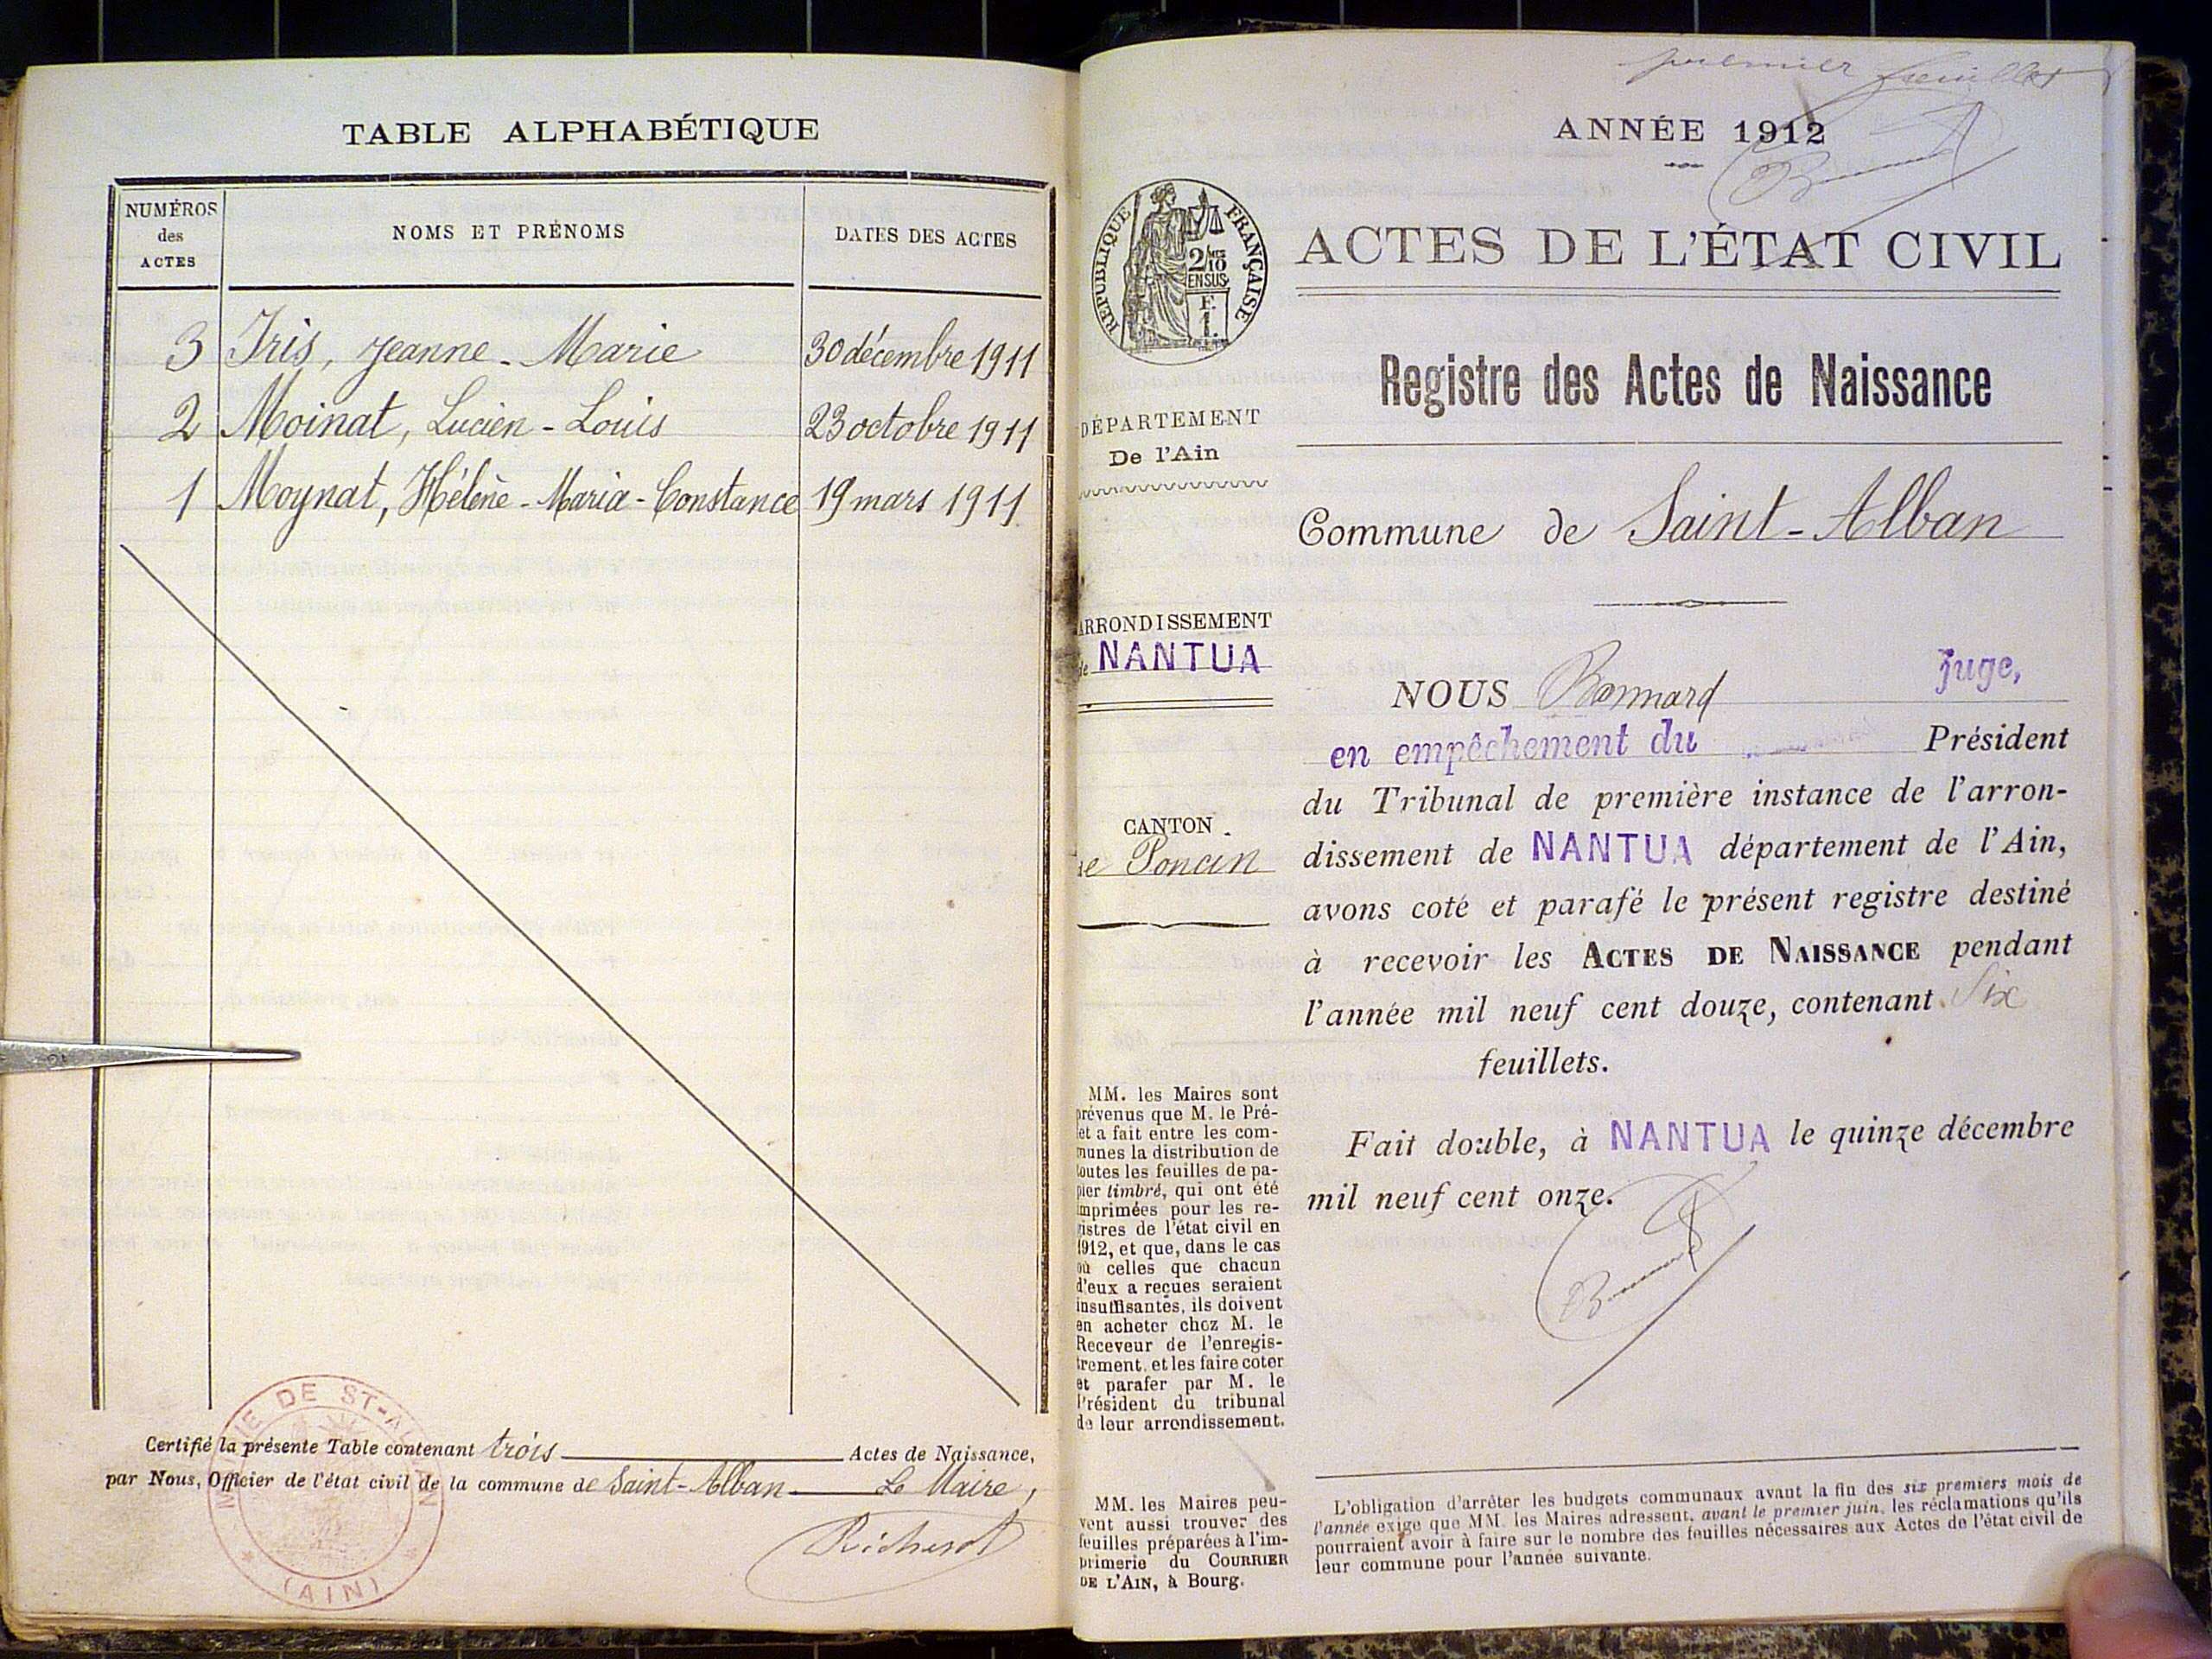 TABLE ALPHABÉTIQUE
NUMÉROS
des
ACTES
NOMS ET PRÉNOMS
DATES DES ACTES
3 Iris, Jeanne-Marie 30 décembre 1911
2 Moinat, Lucien-Louis 23 octobre 1911
1 Moynat, Hélène-Maria-Constance 19 mars 1911
Certifié la présente Table contenant trois Actes de Naissance,
par Nous, Officier de l'état civil de la commune de Saint-Alban Le Maire,
MAIRIE DE ST-ALBAN
(AIN)
premier feuillet
ANNÉE 1912
RÉPUBLIQUE FRANÇAISE
2/10
EN SUS
F.
1.
ACTES DE L'ÉTAT CIVIL
Registre des Actes de Naissance
DÉPARTEMENT
De l'Ain
Commune de Saint-Alban
ARRONDISSEMENT
de NANTUA
CANTON
de Poncin
NOUS Bonnard Juge,
en empêchement du Président
du Tribunal de première instance de l'arron-
dissement de NANTUA département de l'Ain,
avons coté et parafé le présent registre destiné
à recevoir les ACTES DE NAISSANCE pendant
l'année mil neuf cent douze, contenant Six
feuillets.
Fait double, à NANTUA le quinze décembre
mil neuf cent onze.
MM. les Maires sont
prévenus que M. le Pré-
fet a fait entre les com-
munes la distribution de
toutes les feuilles de pa-
pier timbré, qui ont été
imprimées pour les re-
gistres de l'état civil en
1912, et que, dans le cas
où celles que chacun
d'eux a reçues seraient
insuffisantes, ils doivent
en acheter chez M. le
Receveur de l'enregis-
trement, et les faire coter
et parafer par M. le
Président du tribunal
de leur arrondissement.
MM. les Maires peu-
vent aussi trouver des
feuilles préparées à l'im-
primerie du COURRIER
DE L'AIN, à Bourg.
L'obligation d'arrêter les budgets communaux avant la fin des six premiers mois de
l'année exige que MM. les Maires adressent, avant le premier juin, les réclamations qu'ils
pourraient avoir à faire sur le nombre des feuilles nécessaires aux Actes de l'état civil de
leur commune pour l'année suivante.